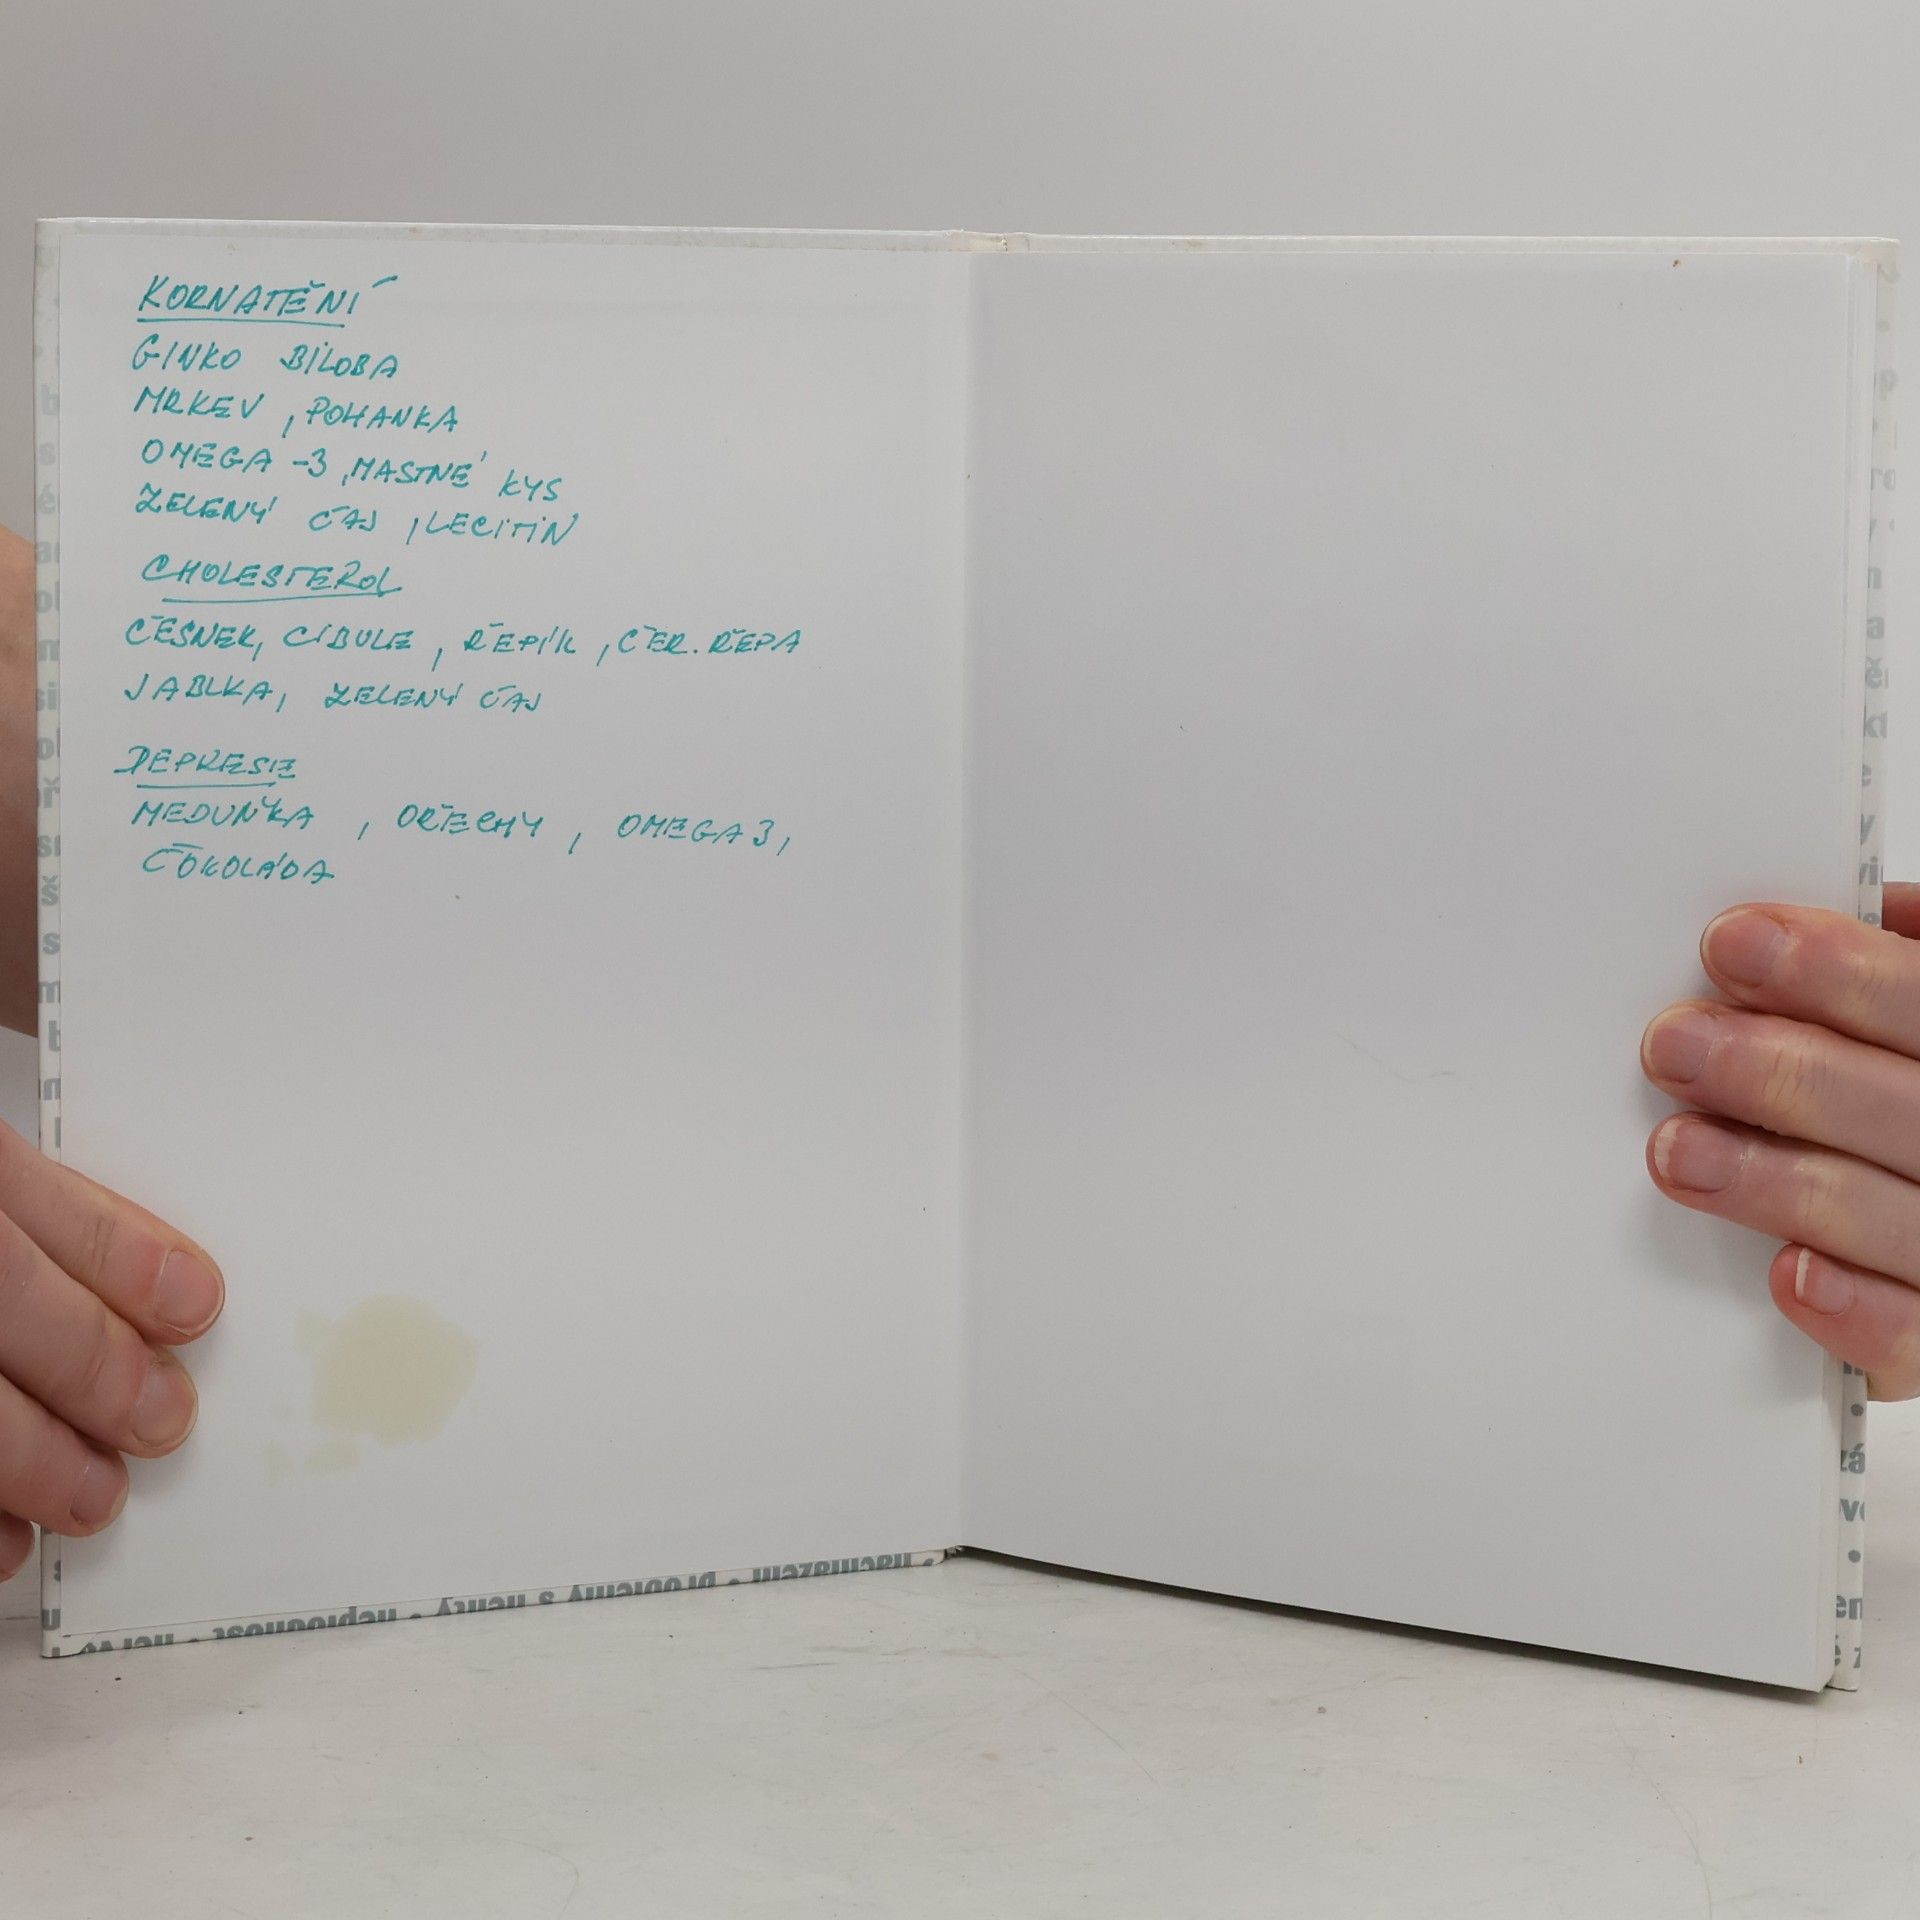 KORNATĚNÍ
GINKO BILOBA
MRKEV, POHANKA
OMEGA-3, MASTNÉ KYS
ZELENÝ ČAJ, LECITIN
CHOLESTEROL
ČESNEK, CIBULE, ŘEPÍK, ČER. ŘEPA
JABLKA, ZELENÝ ČAJ
DEPRESIE
MEDUŇKA, OŘECHY, OMEGA 3,
ČOKOLÁDA
nachlazení • problémy s nehty • neplodnost •